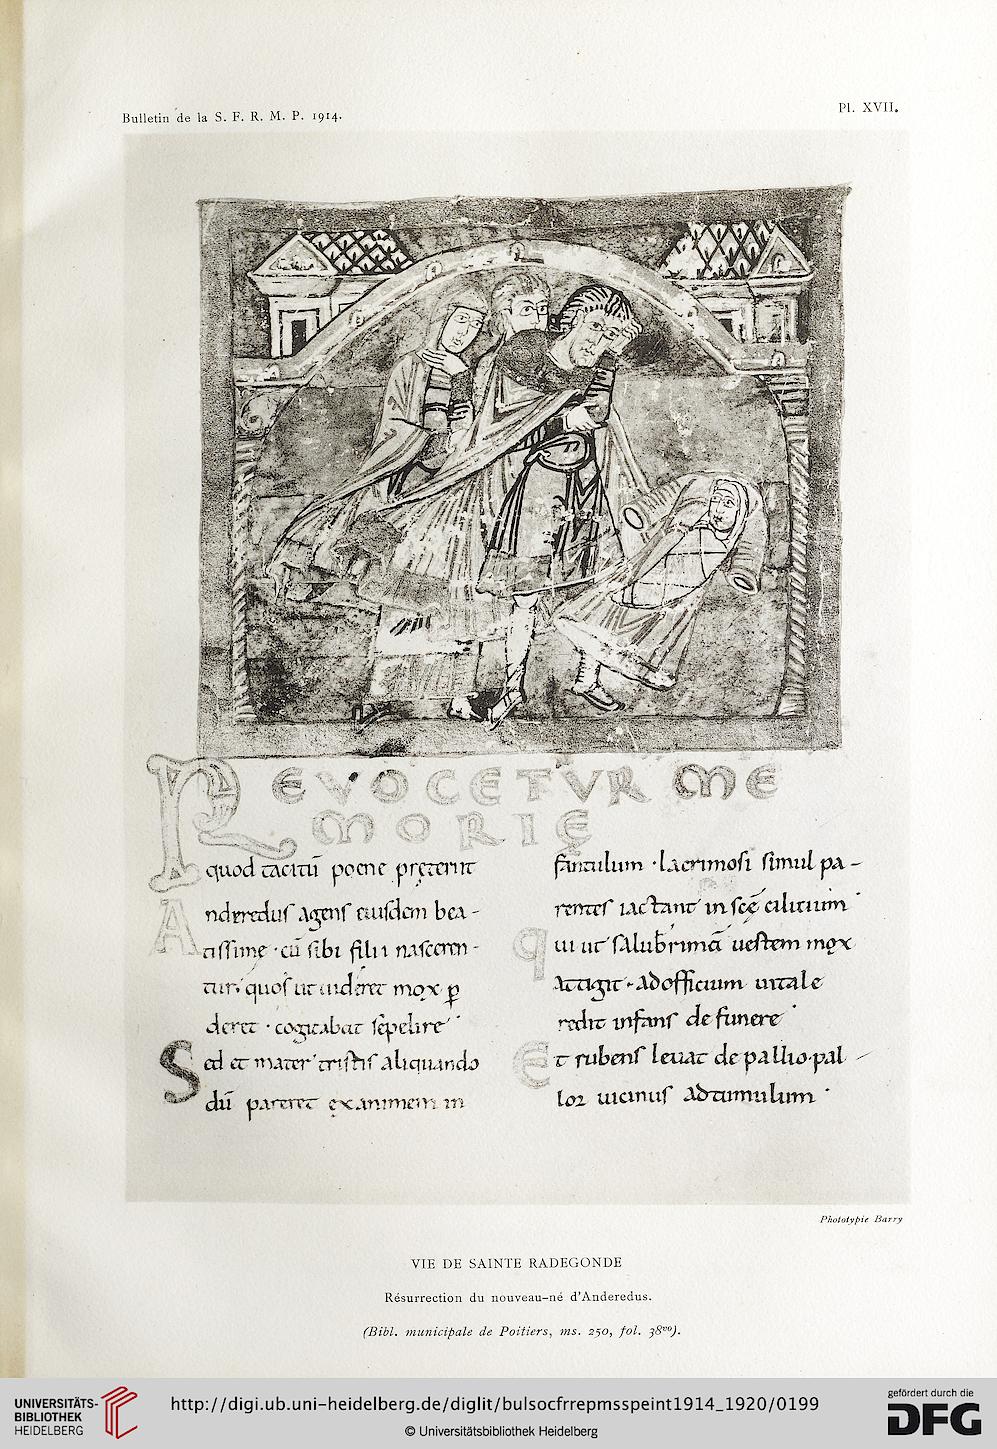 Bulletin de la S. F. R. M. P. 1914.
Pl. XVII.
REVOCETVR ME
MORIĘ
quod tacitū poene pręteriit
Anderedus agens eiusdem bea-
tissime · cū sibi filii nasceren-
tur · quos ut uideret mox ꝑ
deret · cogitabat sepelire
Sed et mater tristis aliquando
dū pareret exanimem in
fantulum · lacrimosi simul pa-
rentes iactant in scę cilicium
qui ut saluberrimā uestem mox
attigit · ad officium uitale
rediit infans de funere
Et rubens leuat de pallio · pal
lor uicinus ad tumulum ·
Phototypie Barry
VIE DE SAINTE RADEGONDE
Résurrection du nouveau-né d'Anderedus.
(Bibl. municipale de Poitiers, ms. 250, fol. 38vo).
UNIVERSITÄTS-
BIBLIOTHEK
HEIDELBERG
http://digi.ub.uni-heidelberg.de/diglit/bulsocfrrepmsspeint1914_1920/0199
© Universitätsbibliothek Heidelberg
gefördert durch die
DFG